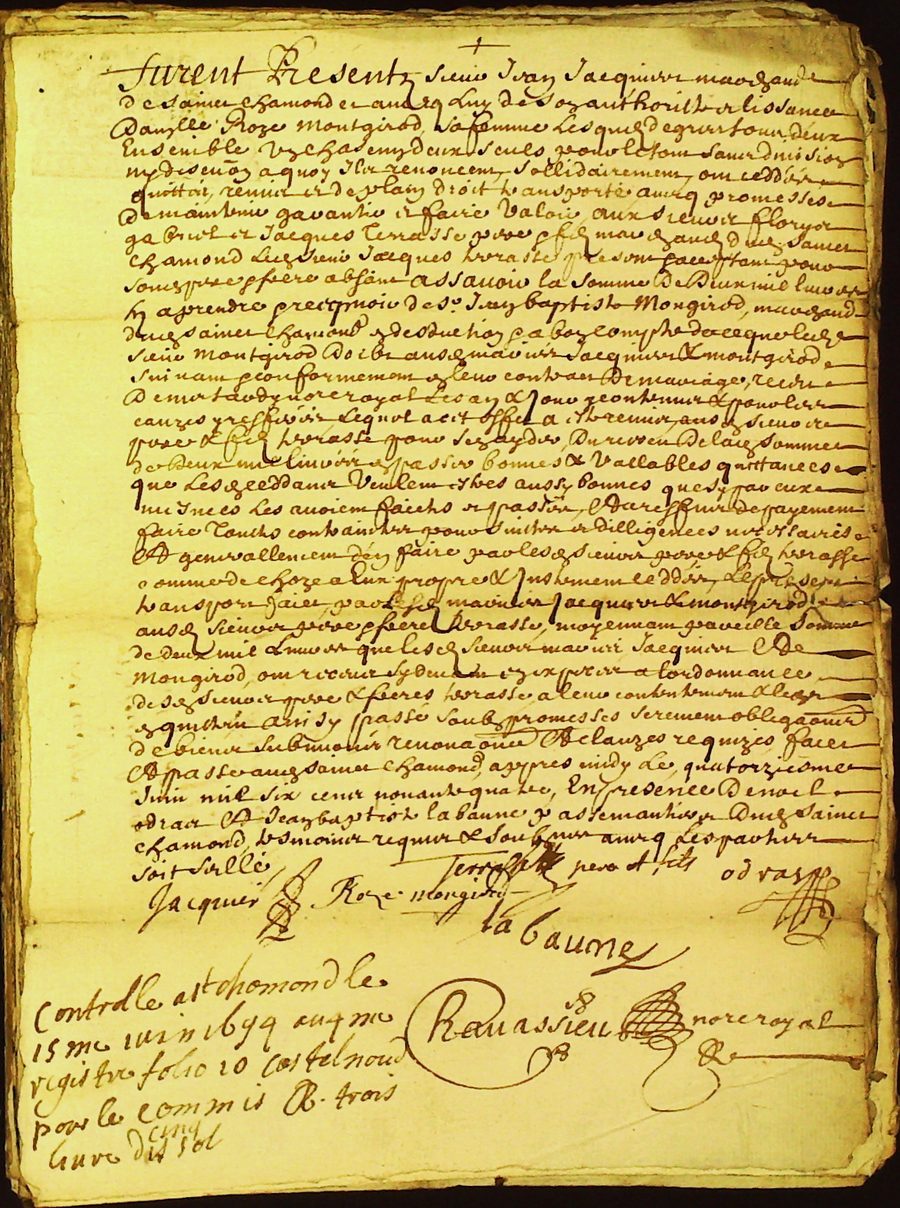 furent Presentz sieur Jean Jacquier marchand
de sainct chamond et aucq luy de son authoritte et lissance
Damlle Roze Montgirod, sa femme lesquels de gré tous deux
Ensemble un chascun deux seules pour le tout sans division
ny discution a quoy Ils renoncent sollidairement, ont ceddés
quittés, remis et de plain droit transporté aucq promesses
De maintenir garantir et faire valoir, aux sieurs floris
gabriel et Jacques Terrasse pere et fils marchands dud sainct
chamond led sieur Jacques terrasse present acceptant pour
sond pere et frere absent assavoir la somme de Deux mil livres
a prendre et recepvoir de sr Jean baptiste Mongirod, marchand
dud sainct chamond en desduction et a bon compte de ce que led
sieur Montgirod doibt ausd mariés Jacquier et montgirod
suivant et conformement a leur contract De mariage, receu
De notaire royal les an et Jour y contenus et pour les
causes y resferées lequel a cet effet a
pere et fils terrasse pour sayder Du receu De lad somme
de Deux mil livres en passer bonnes et vallables quittances
que lesd ceddants veulent estres aussy bonnes que sy par eux
mesmes les avoient faictes et passées, Et a reffus de payement
faire touttes contrainctes poursuittes et dilligences necessaires
Et generallement den faire par lesd sieurs pere et fils terrasse
comme de choze a Eux propre et Justement ceddée, Le present
transport faict par lesd mariés Jacquier et montgirod
ausd sieurs pere et freres terrasse, moyennant pareille somme
de deux mil livres que lesd sieurs mariés Jacquier Et De
Mongirod, ont receu cy devant a lordonnance
desd sieurs pere et freres terrasse a leur contentement et les
en quittent ainsy passé soubz promesses serement obligaons
de biens submions renonaons Et clauzes requizes faict
Et passé aud sainct chamond, appres midy le quatorziesme
Juin mil six cent nonante quatre, En presence De noel
odras Et Jean baptiste la baune passementier Dud sainct
chamond, tesmoins requis et soubznes aucq les parties
soit scellé
Jacquier Roze mongirod Terrasse pere et fils odras
la baune
Controlle a st chomond le
15 me iuin 1694 au 4 me
registre folio 10 Castelnoud
pour le commis R. trois
livre cinq sol
Ravassieu nore royal